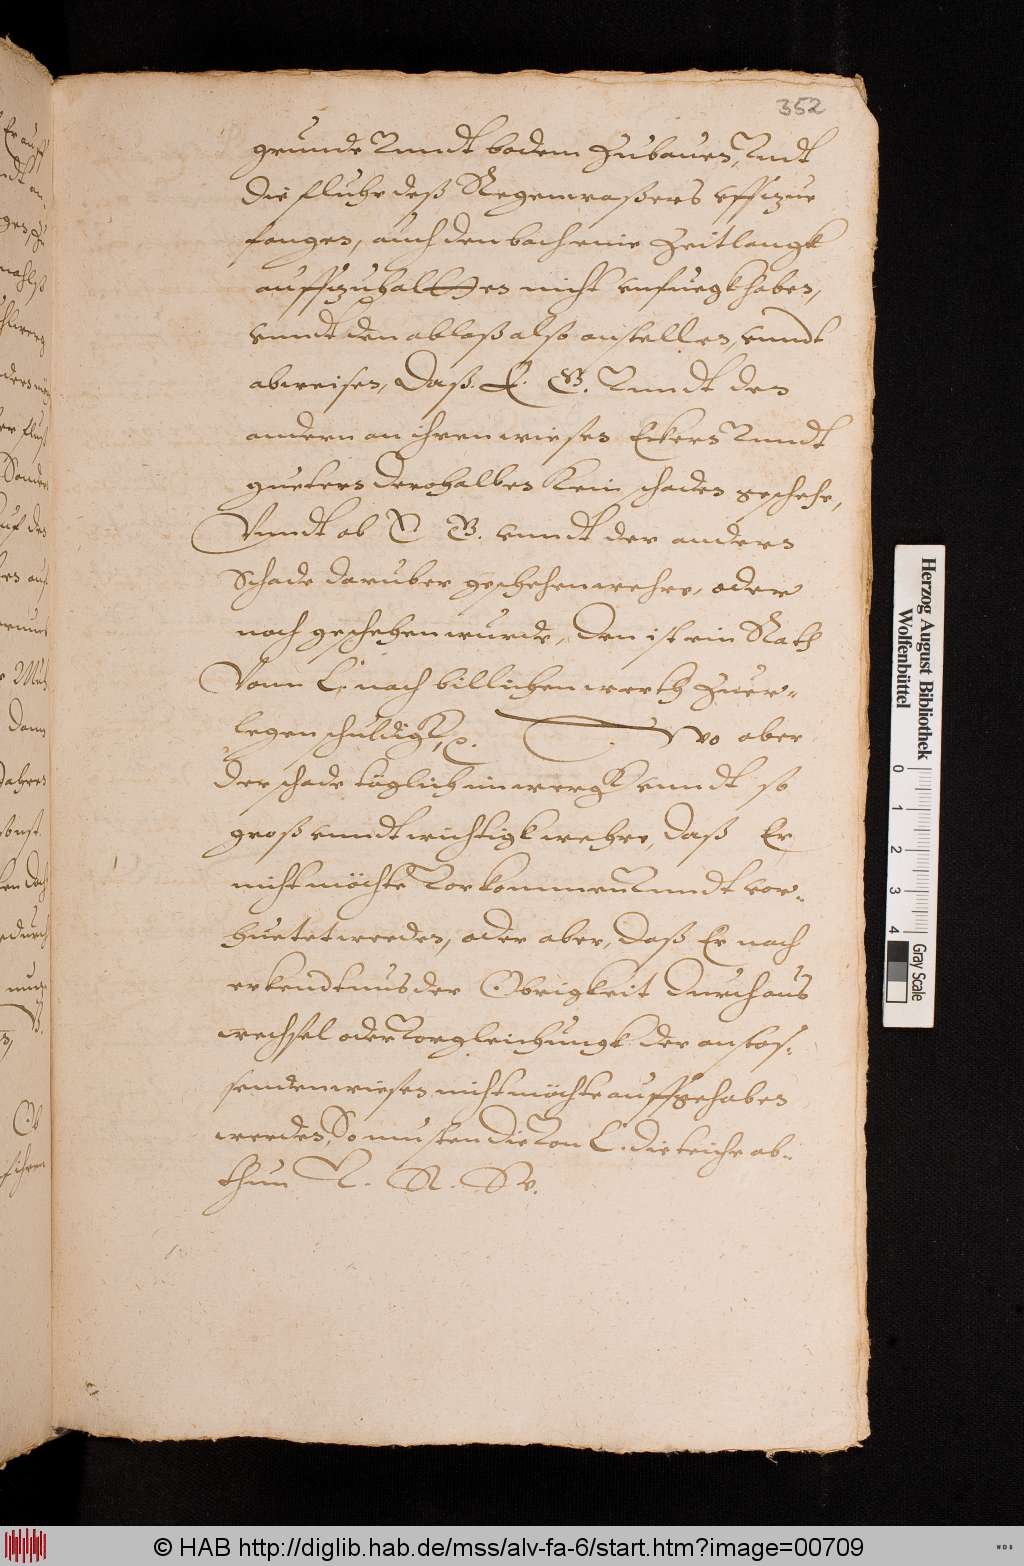 352
grunde Vnndt bodem Zubauen, Vndt
die fluhe deß Regenwaßers vffzue
fangen, auch den bach eine Zeitlangk
auffzuhalten nicht vnfuegk haben,
vnndt den ablaß also anstellen, vnndt
abweisen, Daß. L. B. Vnndt den
andern an ihren wiesen Eckern Vnndt
guetern derohalben Kein schaden geschehe,
Vnndt ob N B. vnndt der andern
Schade daruber geschehen wehre, oder
noch geschehen wurde, den ist ein Rath
Vonn L. nach billichen werth Zuer-
legen schuldigk, Wo aber
der schade täglich im wergk vnndt so
groß vnndt wichtigk wehre, daß Er
nicht möchte Vorkommen Vnndt vor-
huetet werden, oder aber, daß Er nach
erkendtnus der Obrigkeit durch aus
wechsel oder Vorgleichungk der anstos-
senden wiesen nicht möchte auffgehaben
werden, So musten die Von L. die teiche ab-
thun V. R. W.
Herzog August Bibliothek
Wolfenbüttel
0 1 2 3 4
Gray Scale
© HAB http://diglib.hab.de/mss/alv-fa-6/start.htm?image=00709
WDB